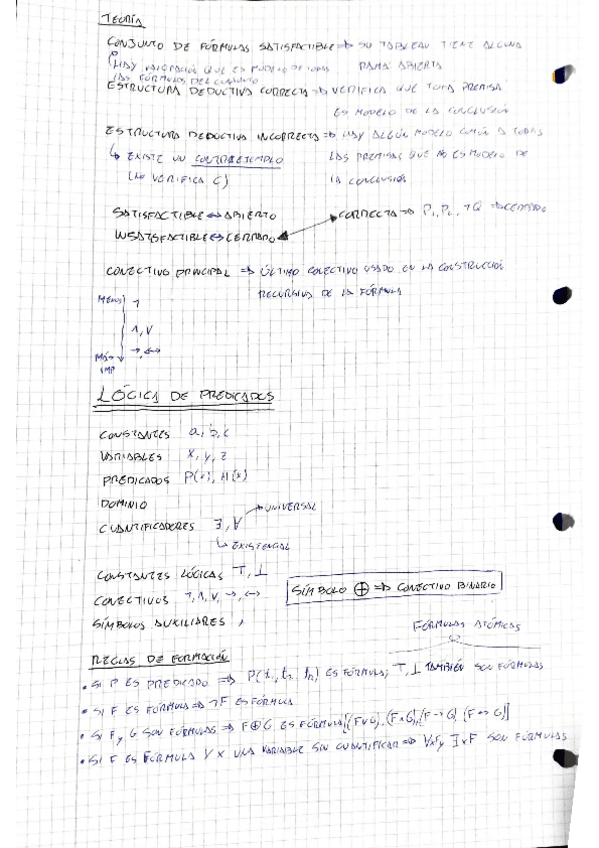 TEORÍA
CONJUNTO DE FÓRMULAS SATISFACTIBLE => SU TABLEAU TIENE ALGUNA
RAMA ABIERTA
HAY VALORACIÓN QUE ES MODELO DE TODAS
LAS FÓRMULAS DEL CONJUNTO
ESTRUCTURA DEDUCTIVA CORRECTA => VERIFICA QUE TODA PREMISA
ES MODELO DE LA CONCLUSIÓN
ESTRUCTURA DEDUCTIVA INCORRECTA => HAY ALGÚN MODELO COMÚN A TODAS
↳ EXISTE UN CONTRAEJEMPLO LAS PREMISAS QUE NO ES MODELO DE
(NO VERIFICA C) LA CONCLUSIÓN
SATISFACTIBLE <=> ABIERTO CORRECTA => P₁, P₂, ¬Q => CERRADO
INSATISFACTIBLE <=> CERRADO
CONECTIVO PRINCIPAL => ÚLTIMO CONECTIVO USADO EN LA CONSTRUCCIÓN
RECURSIVA DE LA FÓRMULA
MENOS ¬
∧, ∨
MÁS →, ↔
IMP
LÓGICA DE PREDICADOS
CONSTANTES a, b, c
VARIABLES x, y, z
PREDICADOS P(x), H(x)
DOMINIO
UNIVERSAL
CUANTIFICADORES ∃, ∀
↳ EXISTENCIAL
CONSTANTES LÓGICAS ⊤, ⊥
CONECTIVOS ¬, ∧, ∨, →, ↔
SÍMBOLO ⊕ => CONECTIVO BINARIO
SÍMBOLOS AUXILIARES ,
FÓRMULAS ATÓMICAS
REGLAS DE FORMACIÓN
• SI P ES PREDICADO => P(t₁, t₂ tₙ) ES FÓRMULA; ⊤, ⊥ TAMBIÉN SON FÓRMULAS
• SI F ES FÓRMULA => ¬F ES FÓRMULA
• SI F y G SON FÓRMULAS => F⊕G ES FÓRMULA [(F∨G), (F∧G), (F→G), (F↔G)]
• SI F ES FÓRMULA Y X UNA VARIABLE SIN CUANTIFICAR => ∀xF y ∃xF SON FÓRMULAS